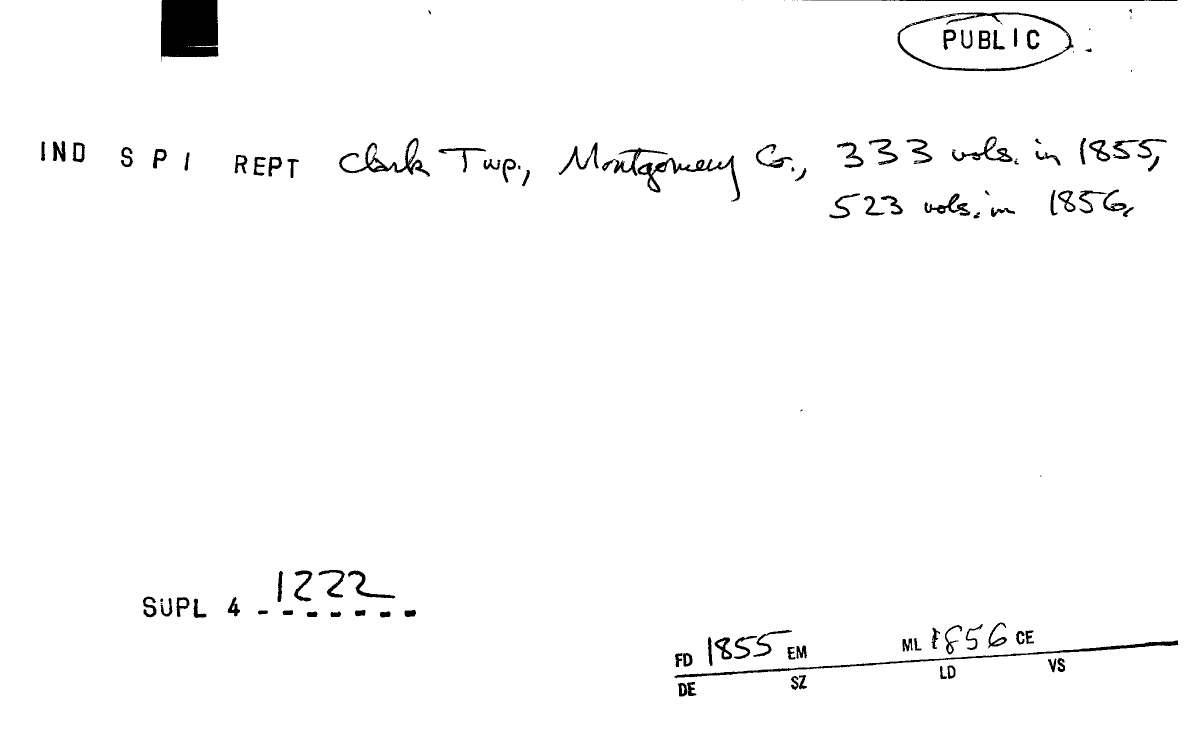 PUBLIC
IND S P I REPT Clark Twp., Montgomery Co., 333 vols. in 1855,
523 vols. in 1856,
SUPL 4 1222
FD 1855 EM ML 1856 CE
DE SZ LD VS